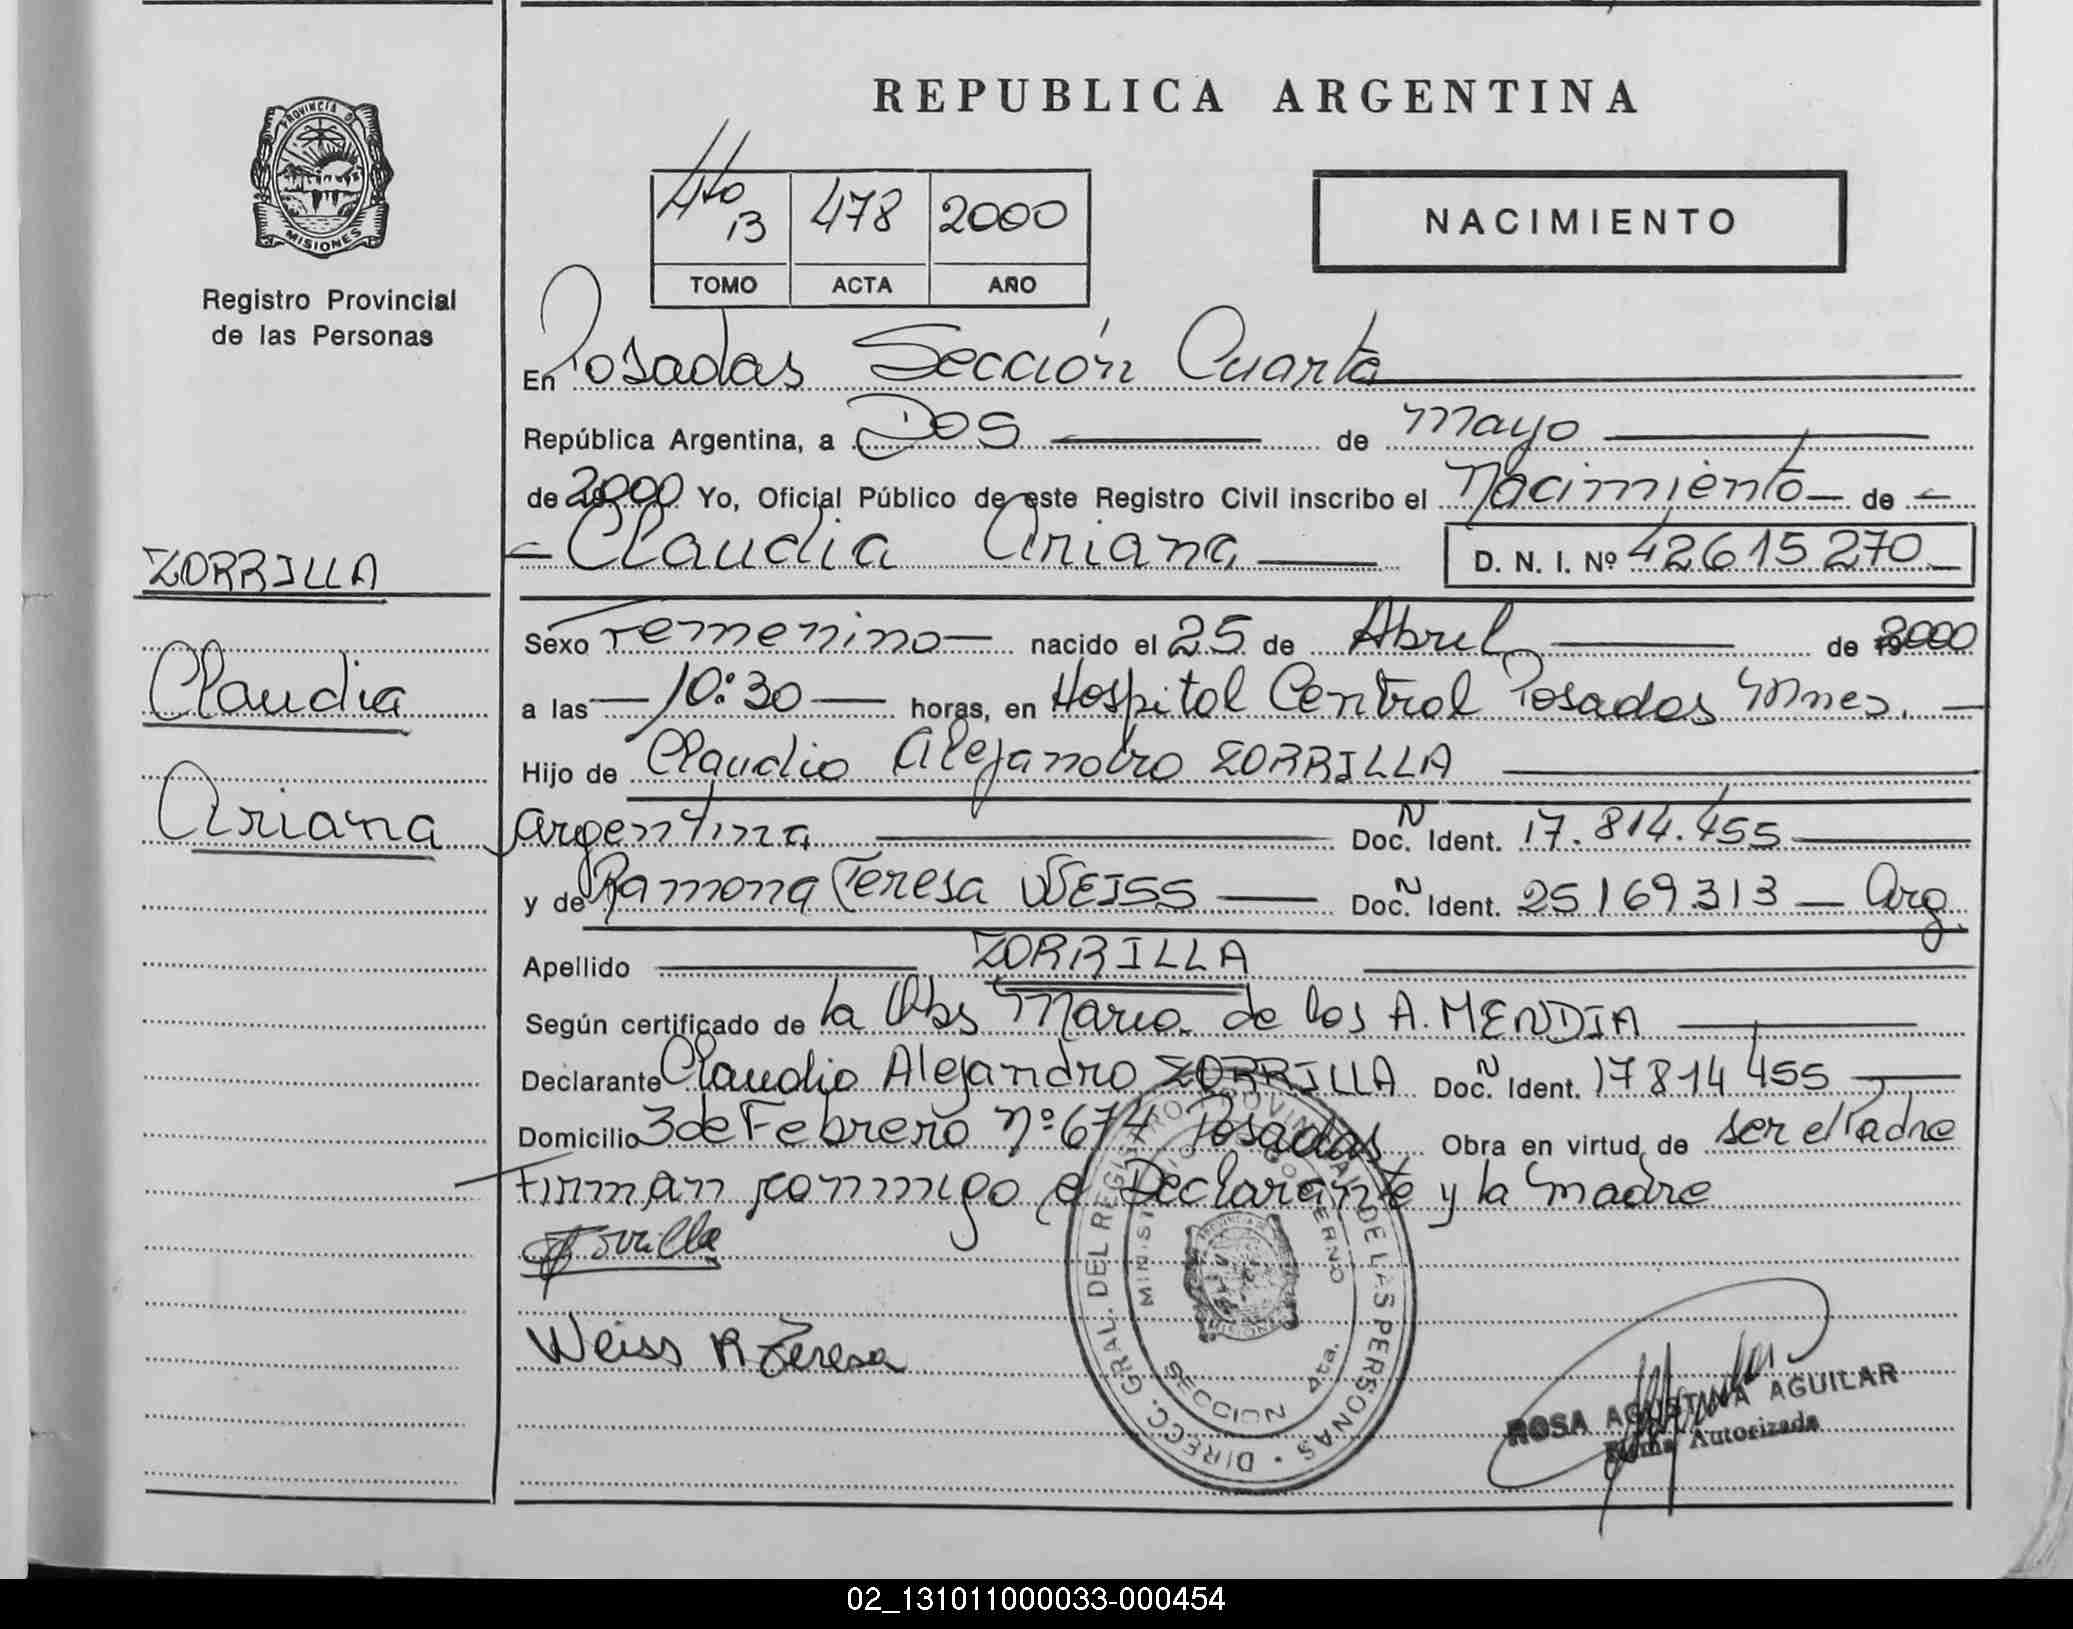 REPUBLICA ARGENTINA
PROVINCIA DE
MISIONES
Registro Provincial
de las Personas
4to 13 478 2000
TOMO ACTA AÑO
NACIMIENTO
En Posadas Sección Cuarta
República Argentina, a Dos de mayo
de 2000 Yo, Oficial Público de este Registro Civil inscribo el Nacimiento de
Claudia Ariana D. N. I. Nº 42615270
ZORRILLA
Claudia
Ariana
Sexo Femenino nacido el 25 de Abril de 2000
a las 10:30 horas, en Hospital Central Posadas Mnes.
Hijo de Claudio Alejandro ZORRILLA
Argentina Doc. N Ident. 17.814.455
y de Ramona Teresa WEISS Doc. N Ident. 25169313 Arg.
Apellido ZORRILLA
Según certificado de la Obs Maria de los A. MENDIA
Declarante Claudio Alejandro ZORRILLA Doc. N Ident. 17814455
Domicilio 3 de Febrero nº 674 Posadas Obra en virtud de ser el Padre
Firman conmigo el Declarante y la madre
Zorrilla
Weiss R Teresa
DIREC. GRAL. DEL REGISTRO PROVINCIAL DE LAS PERSONAS
MINISTERIO DE GOBIERNO
MISIONES
SECCION 4ta.
ROSA AGUSTINA AGUILAR
Firma Autorizada
02_131011000033-000454